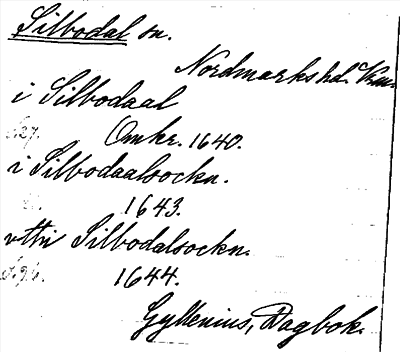 Silbodal sn.
Nordmarks hd. Vrm.
i Silbodaal
s. 27. Omkr. 1640.
i Silbodaalsockn.
1643.
vthi Silbodalsockn.
1644.
Gyllenius, Dagbok.